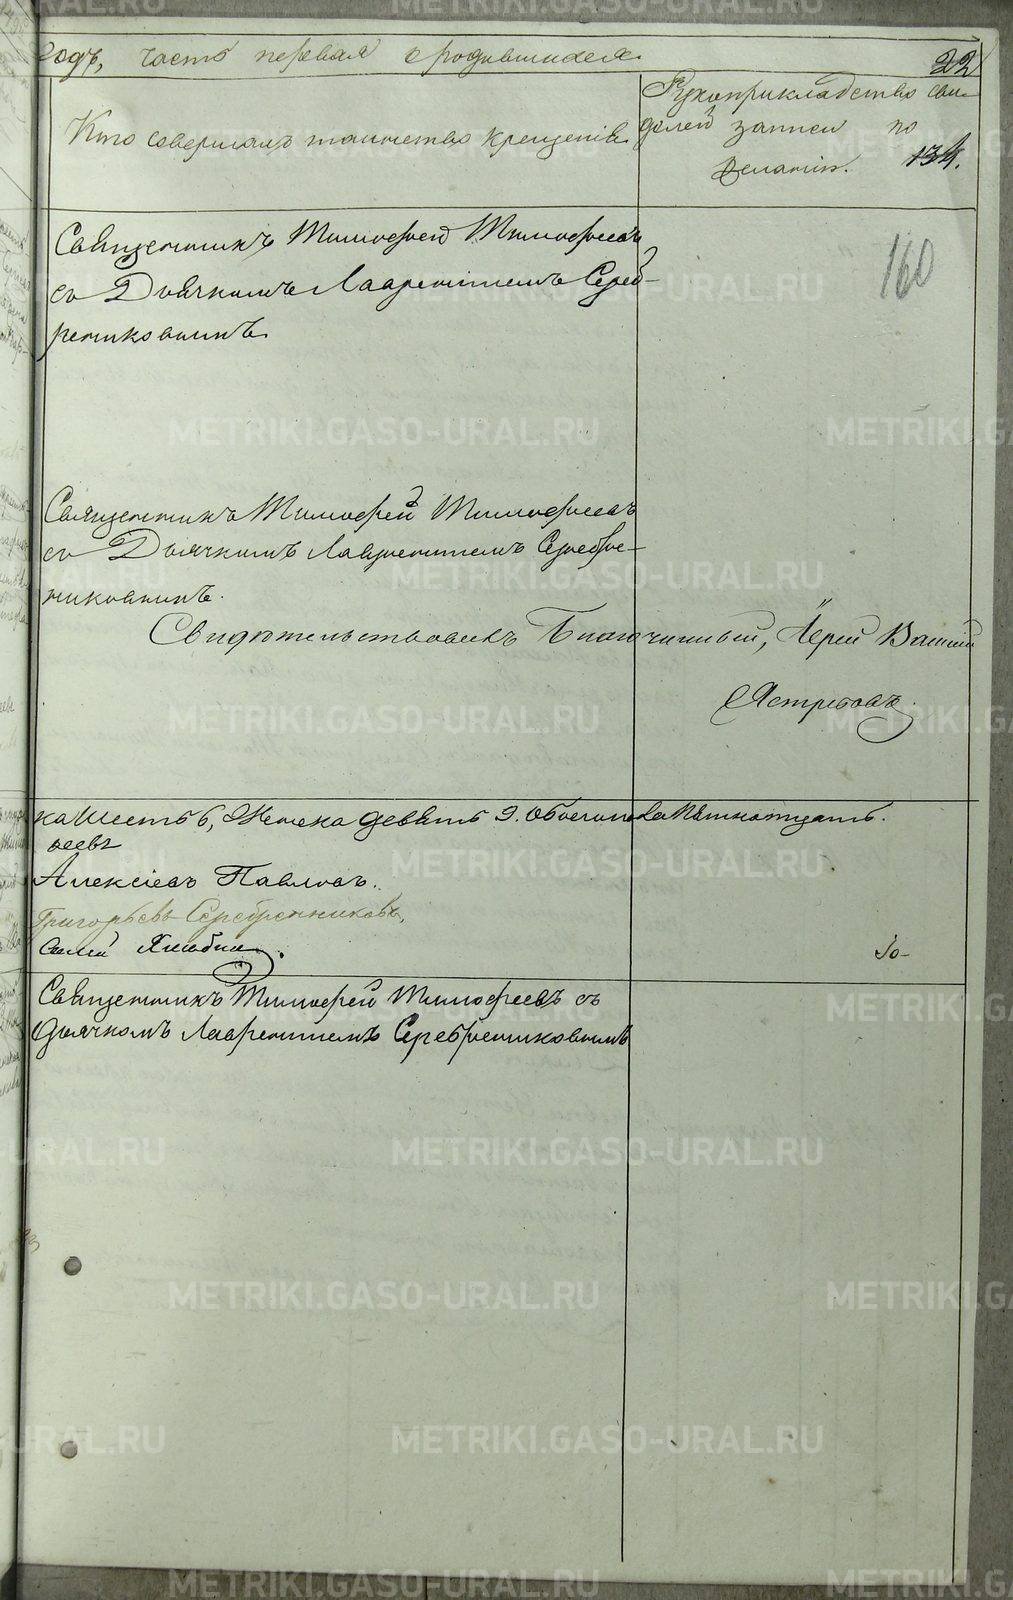 годъ, часть первая о родившихся. 22
Кто совершалъ таинство крещенiя.
Рукоприкладство сви-
дѣлей записи по
желанiю. 134.
160
Священникъ Тимофей Тимофеевъ
съ Дьячкомъ Лаврентiемъ Сереб-
рениковымъ.
Священникъ Тимофей Тимофеевъ
съ Дьячкомъ Лаврентiемъ Серебре-
никовымъ.
Свидѣтельствовалъ Благочинный, Iерей Василiй
Ястребовъ.
ка шесть 6, Женска девять 9. Обоего пола пятнатцать.
феевъ
Алексiевъ Павловъ.
Григорьевъ Серебренниковъ,
силей Хлюбин.
Священникъ Тимофей Тимофеевъ съ
Дьячкомъ Лаврентiемъ Серебрениковымъ
METRIKI.GASO-URAL.RU